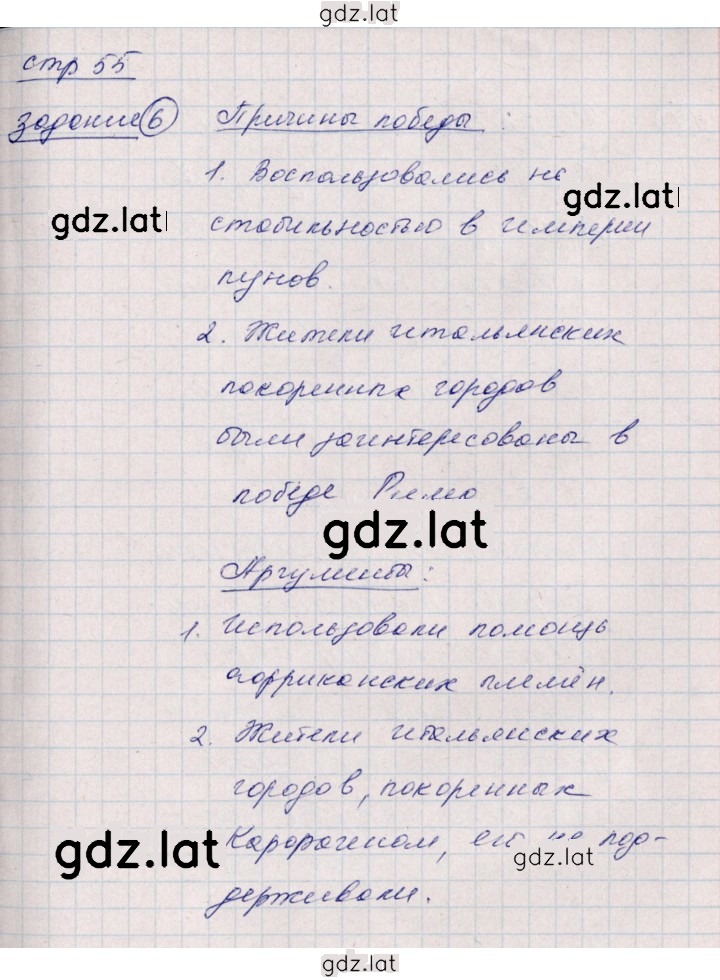 gdz.lat
стр 55
задание 6 Причины победы
1. Воспользовались не
gdz.lat
gdz.lat
стабильностью в империи
пунов.
2. Жители итальянских
покоренных городов
были заинтересованы в
победе Рима
gdz.lat
Аргументы:
1. Использовали помощь
африканских племён.
2. Жители итальянских
городов, покоренных
Карфагеном, его не под-
gdz.lat
gdz.lat
держивали.
gdz.lat